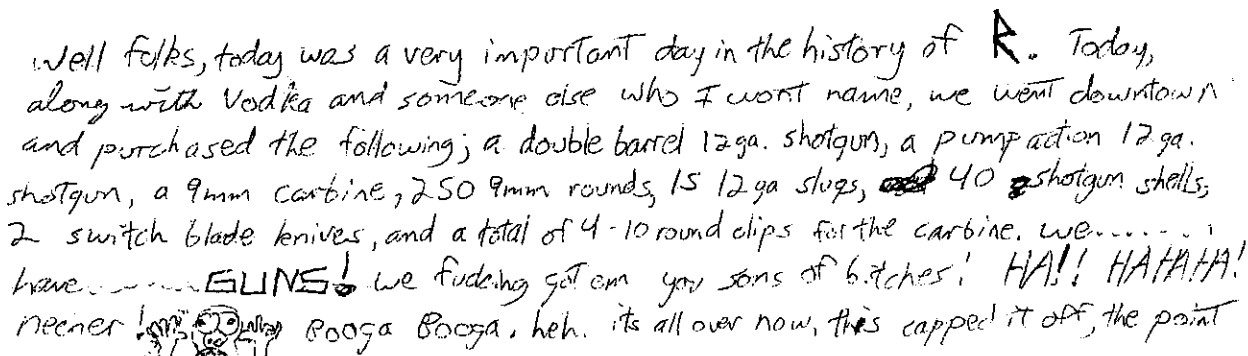 Well folks, today was a very important day in the history of R. Today,
along with Vodka and someone else who I wont name, we went downtown
and purchased the following; a double barrel 12ga. shotgun, a pump action 12 ga.
shotgun, a 9mm carbine, 250 9mm rounds, 15 12ga slugs, 40 shotgun shells,
2 switch blade knives, and a total of 4-10 round clips for the carbine. we........
have.........GUNS! we fucking got em you sons of bitches! HA!! HAHAHA!
neener! Booga Booga. heh. its all over now, this capped it off, the point